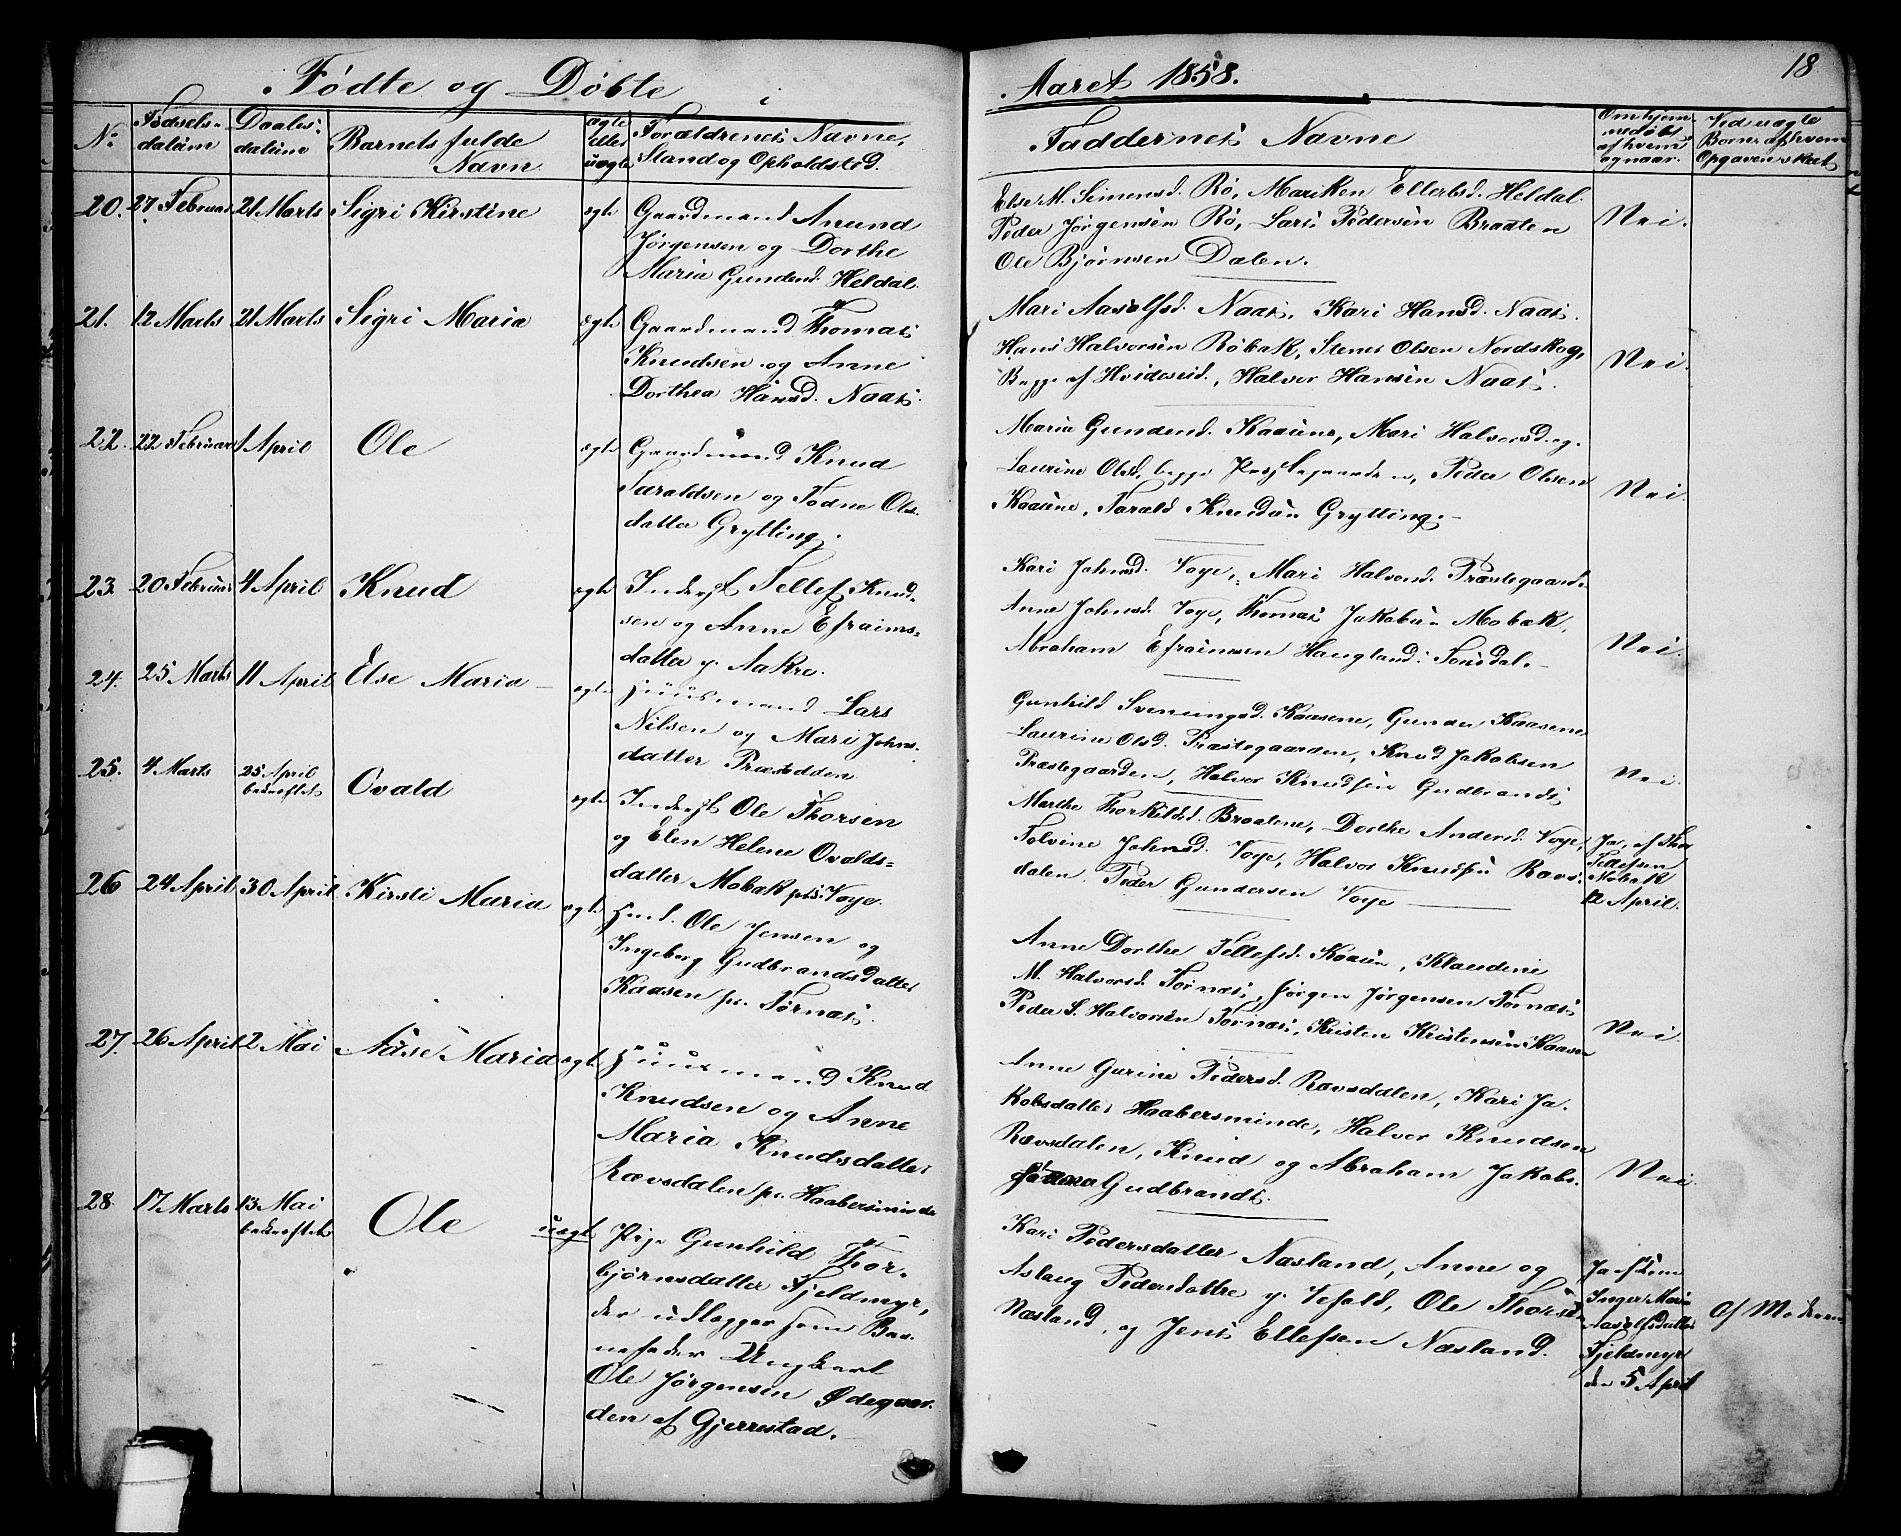 Fødte og Døbte i
Aaret 1858.
18
No
Fødsels-
datum
Daabs-
datum
Barnets fulde
Navn
ægte
eller
uægte
Forældrenes Navne,
Stand og Opholdsted.
Faddernes Navne
Om hjem-
medøbt
af hvem
og naar.
Ved uægte
Børn af hvem
Opgaven skeet
20. 27 Februar 21 Marts Sigri Kirstine ægte
Gaardmand Anund
Jørgensen og Dorthe
Maria Gundersd. Heldal.
Else M. Simensd. Rø, Mariken Ellevsd. Heldal.
Peder Jørgensen Rø, Lars Pedersen Braaten
Ole Bjørnsen Dalen.
Nei.
21. 12 Marts 21 Marts Sigri Maria ægte
Gaardmand Thomas
Knudsen og Anne
Dorthea Hansd. Naas.
Mari Aasolfsd. Naas, Kari Hansd. Naas.
Hans Halvorsen Røbak, Stener Olsen Nordskog,
Begge af Hvideseid, Halvor Hansen Naas.
Nei.
22. 22 Februar 1 April Ole ægte
Gaardmand Knud
Taraldsen og Todne Ols-
datter Grytting.
Maria Gundersd. Kaasene, Mari Halvorsd. og
Laurine Olsd, begge Præstegaarden, Peder Olsen
Kaasene, Tarald Knudsen Grytting.
Nei.
23. 20 Februar 4 April Knud ægte
Inderst Tellef Knud-
sen og Anne Efraims-
datter p. Aakre.
Kari Johnsd. Voje, Mari Halvorsd. Præstegaard.
Anne Johnsd. Voje, Thomas Jakobsen Mobæk,
Abraham Efraimsen Haugland i Sønsdal.
Nei.
24. 25 Marts 11 April Else Maria ægte
Huusmand Lars
Nilsen og Mari Johns-
datter Præstodden
Gunhild Svenungsd. Kaasene, Gunder Kaasene
Laurine Olsd. Præstegaarden, Knud Jakobsen
Præstegaarden, Halvor Knudsen Gudbrands
Nei.
25. 4 Marts 25 April Ovald ægte
bekræftet
Inderst Ole Thorsen
og Elen Helene Ovalds-
datter Mobæk pls. Voje.
Marthe Thorkildsd. Braatene, Dorthe Andersd. Voje,
Tolvine Johnsd. Voje, Halvor Knudsen Ravs-
dalen, Peder Gundersen Voje
Ja, af Thor
Tellefsen
Mobæk
12 April.
26 24 April 30 April Kirsti Maria ægte
Hmd. Ole Jensen og
Ingeborg Gudbrandsdatter
Kaasen pr. Tørnæs.
Anne Dorthe Tellefsd. Kaasen, Klaudine
M. Halvorsd. Tørnæs, Jørgen Jørgensen Tørnæs
Peder S. Halvorsen Tørnæs, Kristen Kristensen Kaasen
Nei.
27. 26 April 2 Mai Aase Maria ægte
Huusmand Knud
Knudsen og Anne
Maria Knudsdatter
Rævsdalen pr. Haabersminde
Anne Gurine Pedersd. Rævsdalen, Kari Ja-
kobsdatter Haabersminde, Halvor Knudsen
Rævsdalen, Knud og Abraham Jakobs-
Gudbrands.
Nei.
28. 17 Marts 13 Mai Ole uægte
bekræftet
Pige Gunhild Thor-
bjørnsdatter Fjeldmyr,
der udlægger som Bar-
nefader Ungkarl
Ole Jørgensen Ødegaar-
den af Gjerrestad.
Kari Pedersdatter Næsland, Anne og
Aslaug Pedersdøttre p. Vefald, Ole Thorsen
Næsland, og Jens Ellefsen Næsland.
Ja af
Inger Maria
Aasolfsdatter
Fjeldmyr
den 5 April
Af Moderen